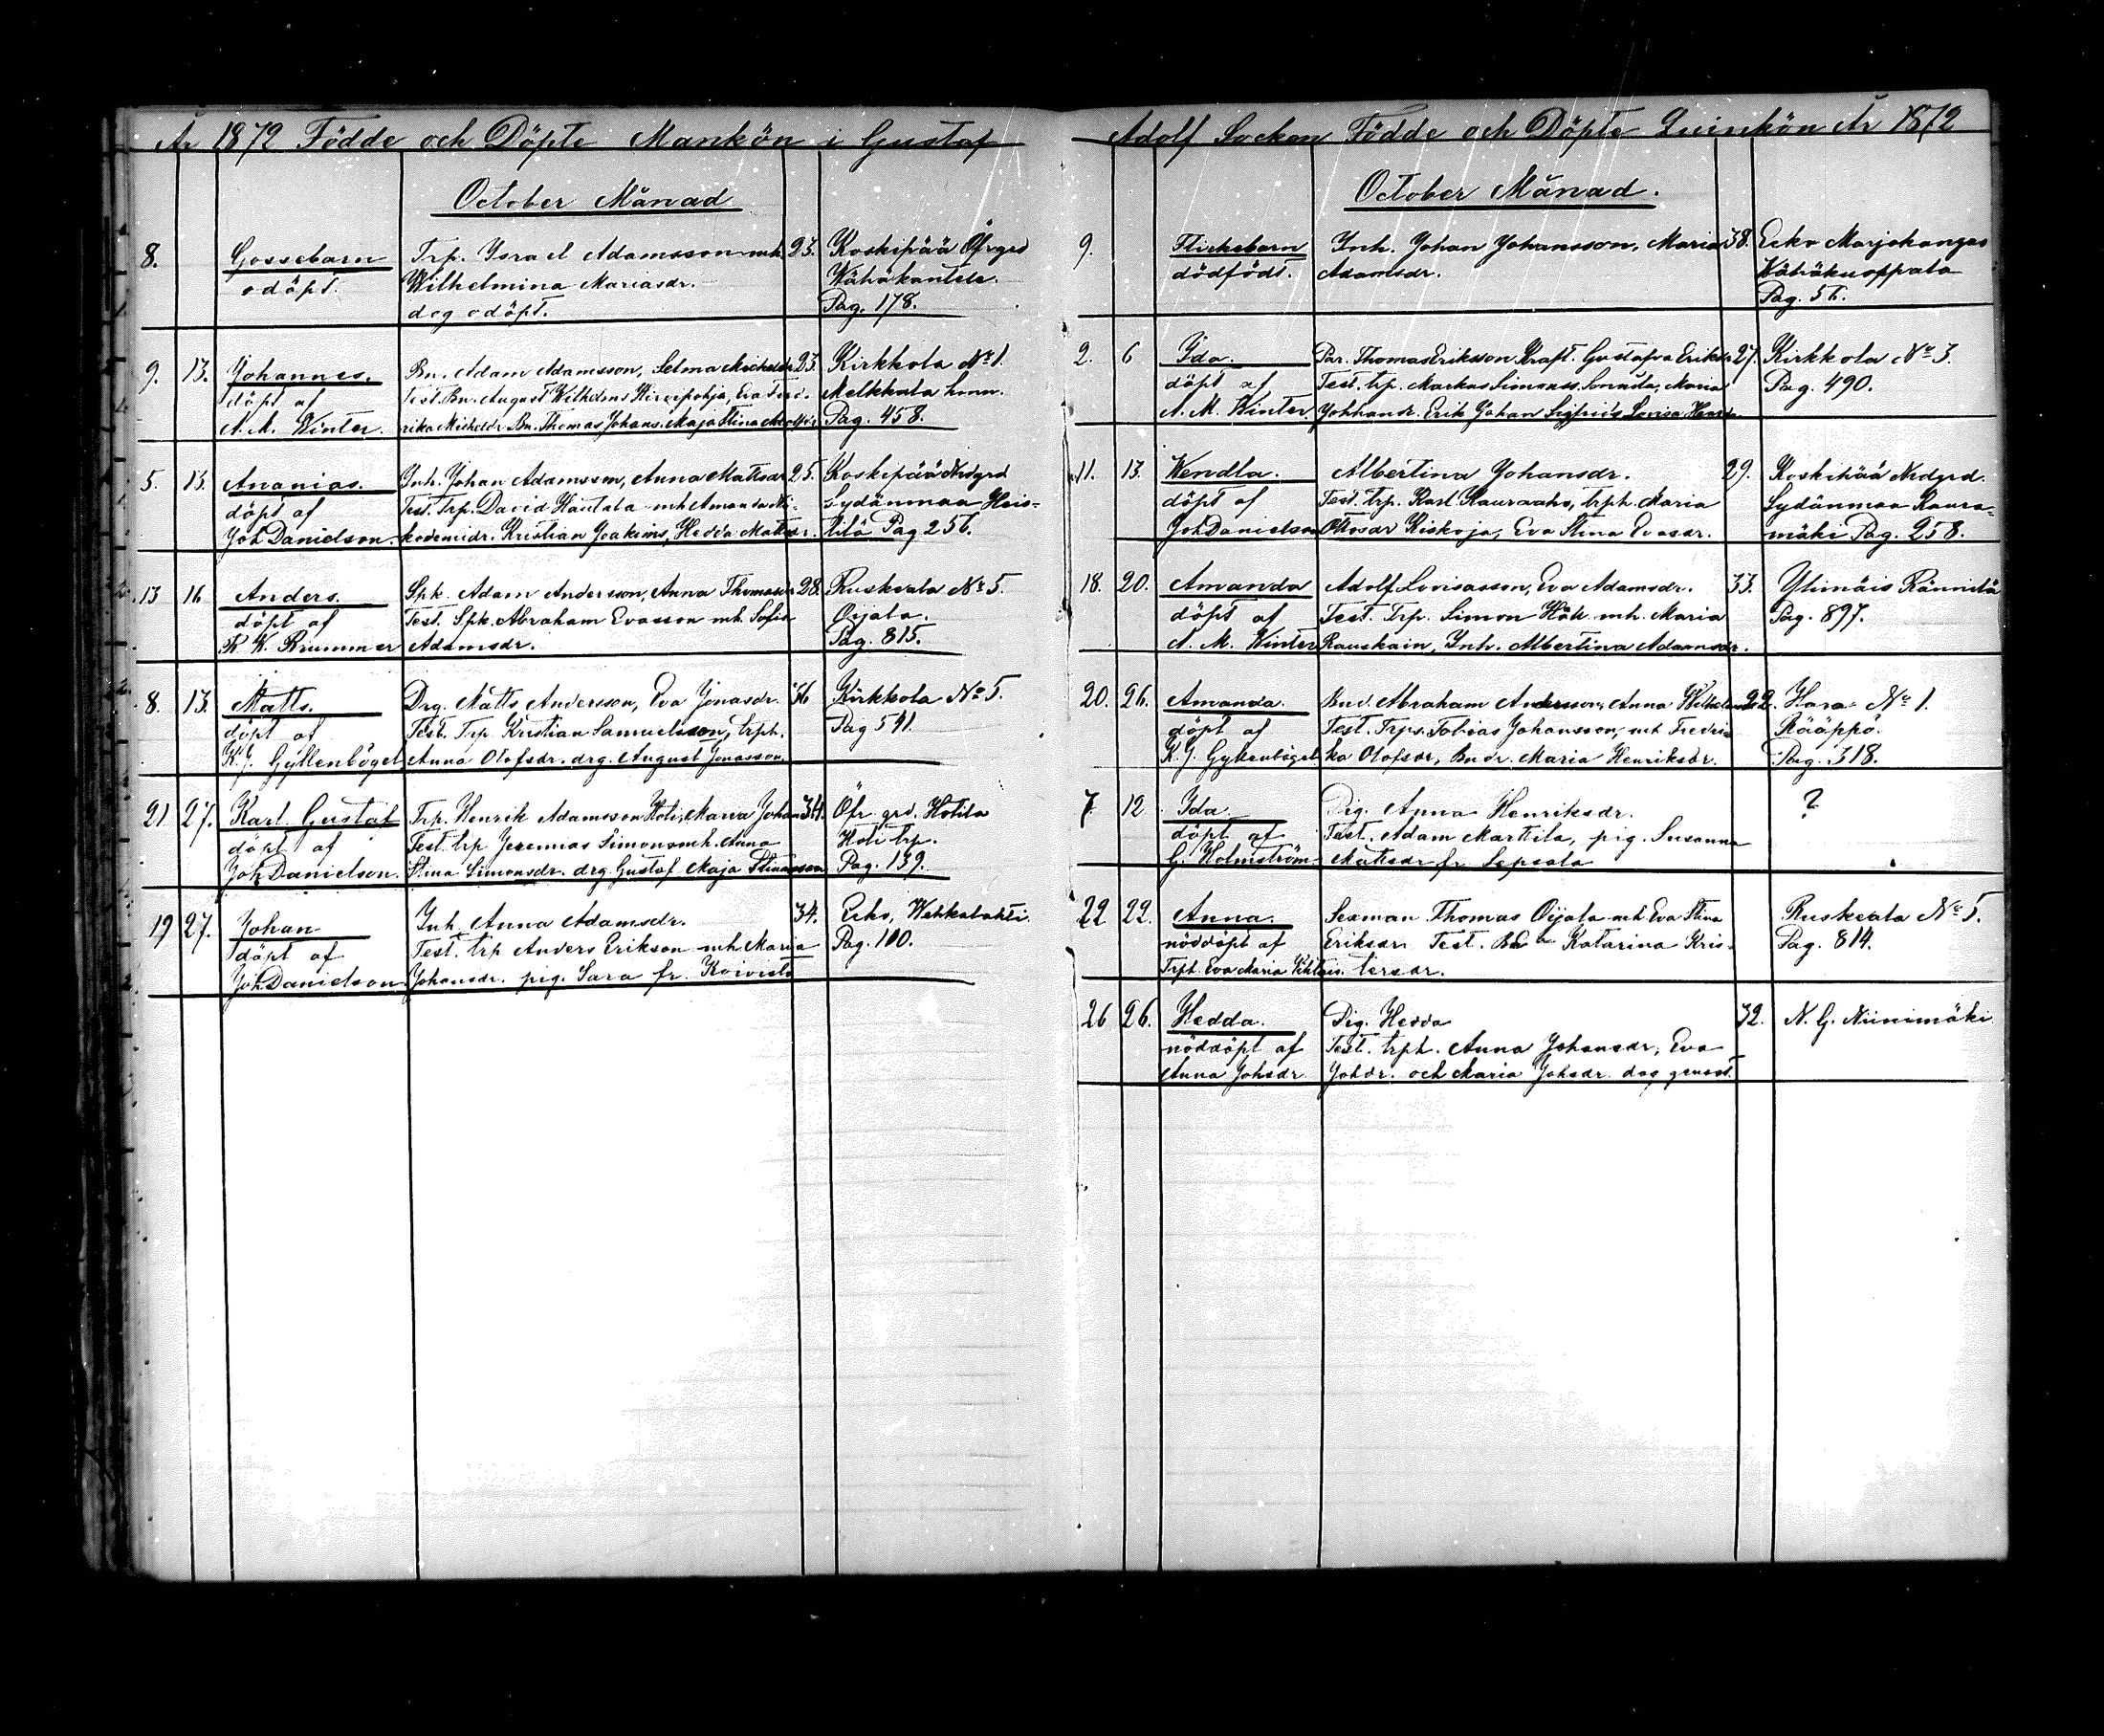 År 1872 Födde och Döpte Mankön i Gustaf
October Månad
8. Gossebarn Trp. Israel Adamsson mh. 23. Koskipää Öfvgrd
odöpt. Wilhelmina Mariasdr. Wähäkantele.
dog odöpt. Pag. 178.
9. 13. Johannes. Bn. Adam Adamsson, Selma Michelsdr 23. Kirkkola No 1.
döpt af Test. Bn. August Wilhelms Eva Fred- Melkkala
A. M. Winter. rika Michelsdr Bn. Thomas Johans. Maja Stina Pag. 458.
5. 13. Ananias. Inh. Johan Adamsson, Anna Mattsdr 25. Koskipää Nedgrd
döpt af Test. Trp. David Hautala mh Amanda Ni- Sydänmaa Heis-
Joh Danielson. kodemidr. Kristian Joakims, Hedda Mattsdr. kilä Pag 256.
13 16 Anders. Spk. Adam Andersson, Anna Thomasdr 28. Ruskeala No 5.
döpt af Test. Spk. Abraham Evasson mh. Sofia Oijala.
K. W. Brummer Adamsdr. Pag. 815.
8. 13. Matts. Drg. Matts Andersson, Eva Jonasdr. 36 Kirkkola No 5.
döpt af Test. Trp Kristian Samuelsson, trph. Pag 541.
K. J. Gyllenbögel Anna Olofsdr. drg. August Jonasson
21 27. Karl Gustaf Trp. Henrik Adamsson Hoti, Maria Johan 34. Öfr grd. Hotila
döpt af Test. trp Jeremias Simons mh. Anna Hoti trp.
Joh Danielson. Stina Simonsdr. drg. Gustaf Maja Stinasson Pag. 139.
19 27. Johan Inh. Anna Adamsdr. 34. Ecko, Wehkalahti.
döpt af Test. trp Anders Erikson mh. Maria Pag. 100.
Joh Danielson Johansdr. pig. Sara fr. Koivisto
Adolf Socken Födde och Döpte Quinkön År 1872
October Månad.
9. Flickebarn Inh. Johan Johansson, Maria 38. Ecko Marjokangas
dödfödt. Adamsdr. Wähäkuoppala
Pag. 56.
2. 6 Ida. Par. Thomas Eriksson Kraft. Gustafva Eriksdr 27. Kirkkola No 3.
döpt af Test. trp. Markus Simonss. Maria Pag. 490.
A. M. Winter. Johhandr. Erik Johan Sigfrids Lovisa
11. 13. Wendla. Albertina Johansdr. 29. Koskipää Nedgrd.
döpt af Test. trp. Karl Kauraaho, trph. Maria Sydänmaa Kaura-
Joh Danielson Ottosdr Kiskoja, Eva Stina Evasdr. mäki Pag. 258.
18. 20. Amanda Adolf Lovisasson, Eva Adamsdr. 33. Ylinäis Rännilä
döpt af Test. Trp. Simon Hök mh. Maria Pag. 897.
A. M. Winter Rauskain, Inh. Albertina Adamsdr.
20. 26. Amanda. Bnd. Abraham Andersson, Anna Wilhelmsdr 22. Hara No 1.
döpt af Test. Trps. Tobias Johansson, mh Fredri- Rääppö.
K. J. Gyllenbögel ka Olofsdr, Bndr. Maria Henriksdr. Pag. 318.
7. 12 Ida. Pig. Anna Henriksdr. ?
döpt af Test. Adam Marttila, pig. Susanna
G. Holmström Mattsdr fr. Sepsala
22 22. Anna. Sexman Thomas Oijala mh Eva Stina Ruskeala No 5.
nöddöpt af Eriksdr. Test. Katarina Kris- Pag. 814.
Trph. Eva Maria tersdr.
26 26. Hedda. Pig. Hedda 32. N. G. Niinimäki
nöddöpt af Test. trph. Anna Johansdr, Eva
Anna Johsdr. Johdr. och Maria Johsdr. dog genast.